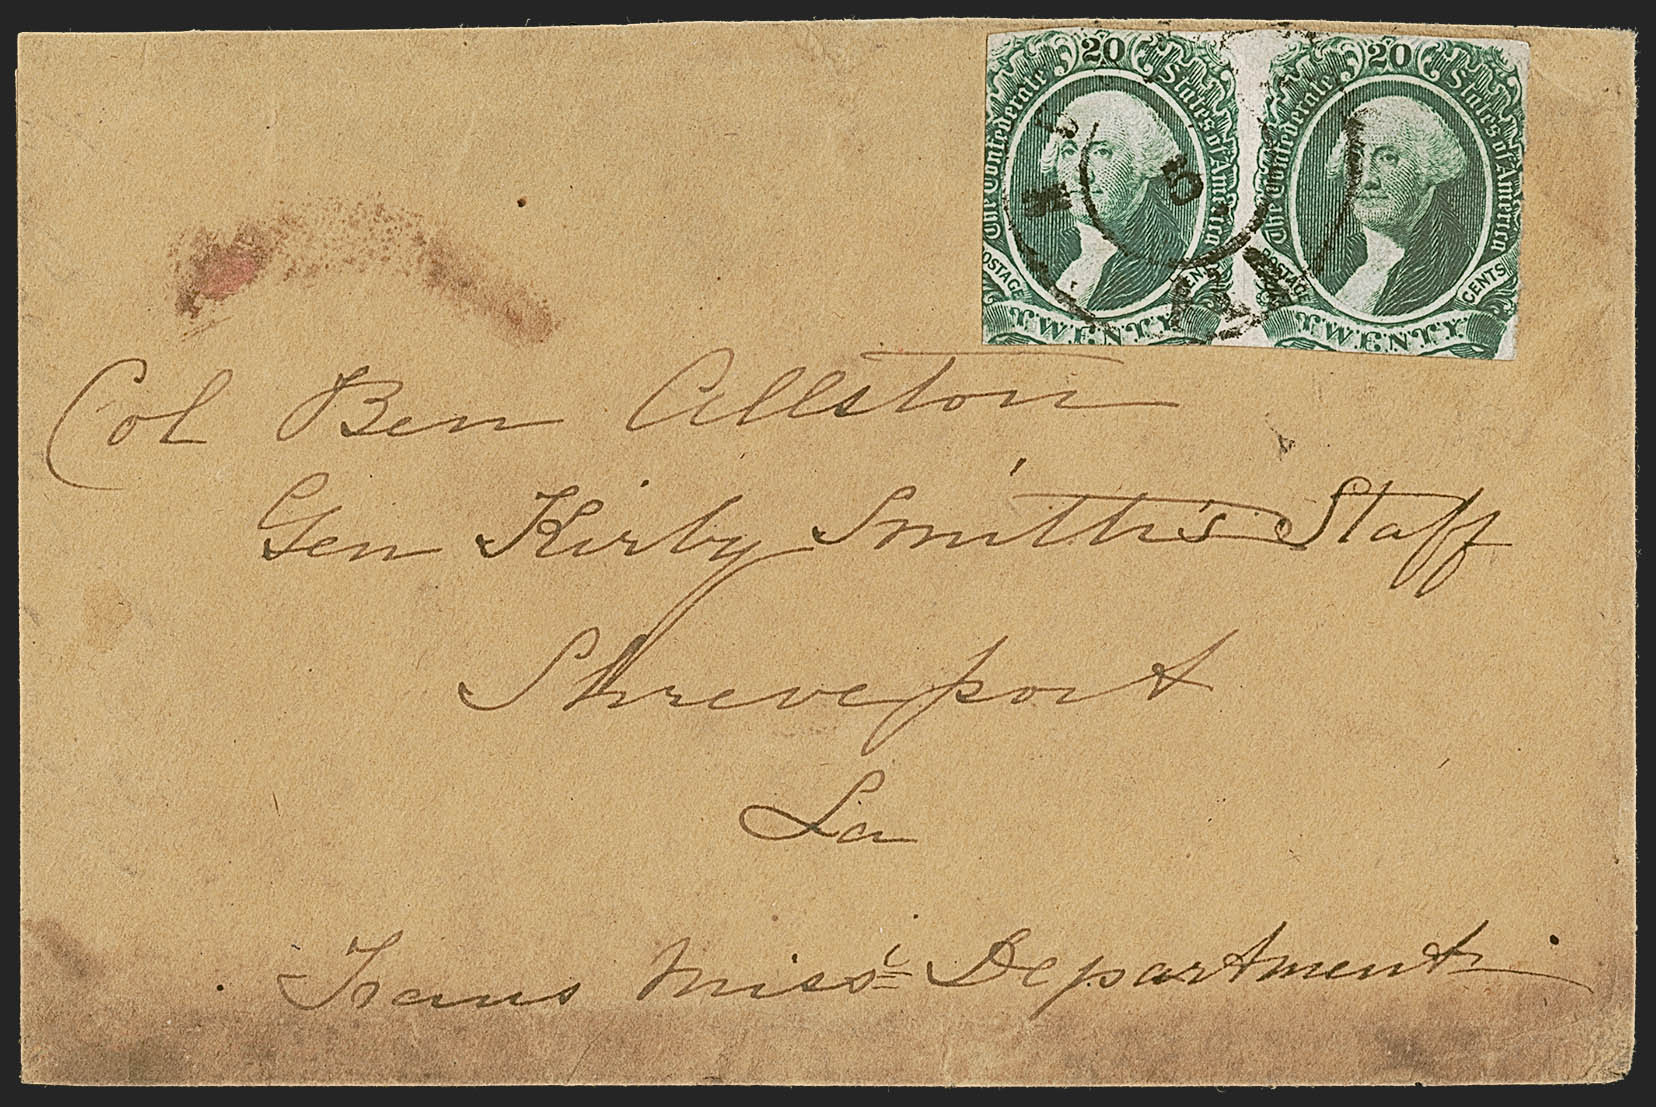 20 20
The Confederate States of America The Confederate States of America
POSTAGE CENTS POSTAGE CENTS
TWENTY TWENTY
5
Col Ben Allston
Gen Kirby Smith's Staff
Shreveport
La
Trans Miss: Department